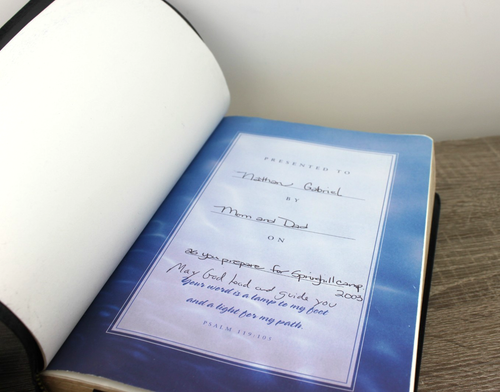 PRESENTED TO
Nathan Gabriel
BY
Mom and Dad
ON
as you prepare for Springhill camp
2003
May God lead and guide you
Your word is a lamp to my feet
and a light for my path.
PSALM 119:101